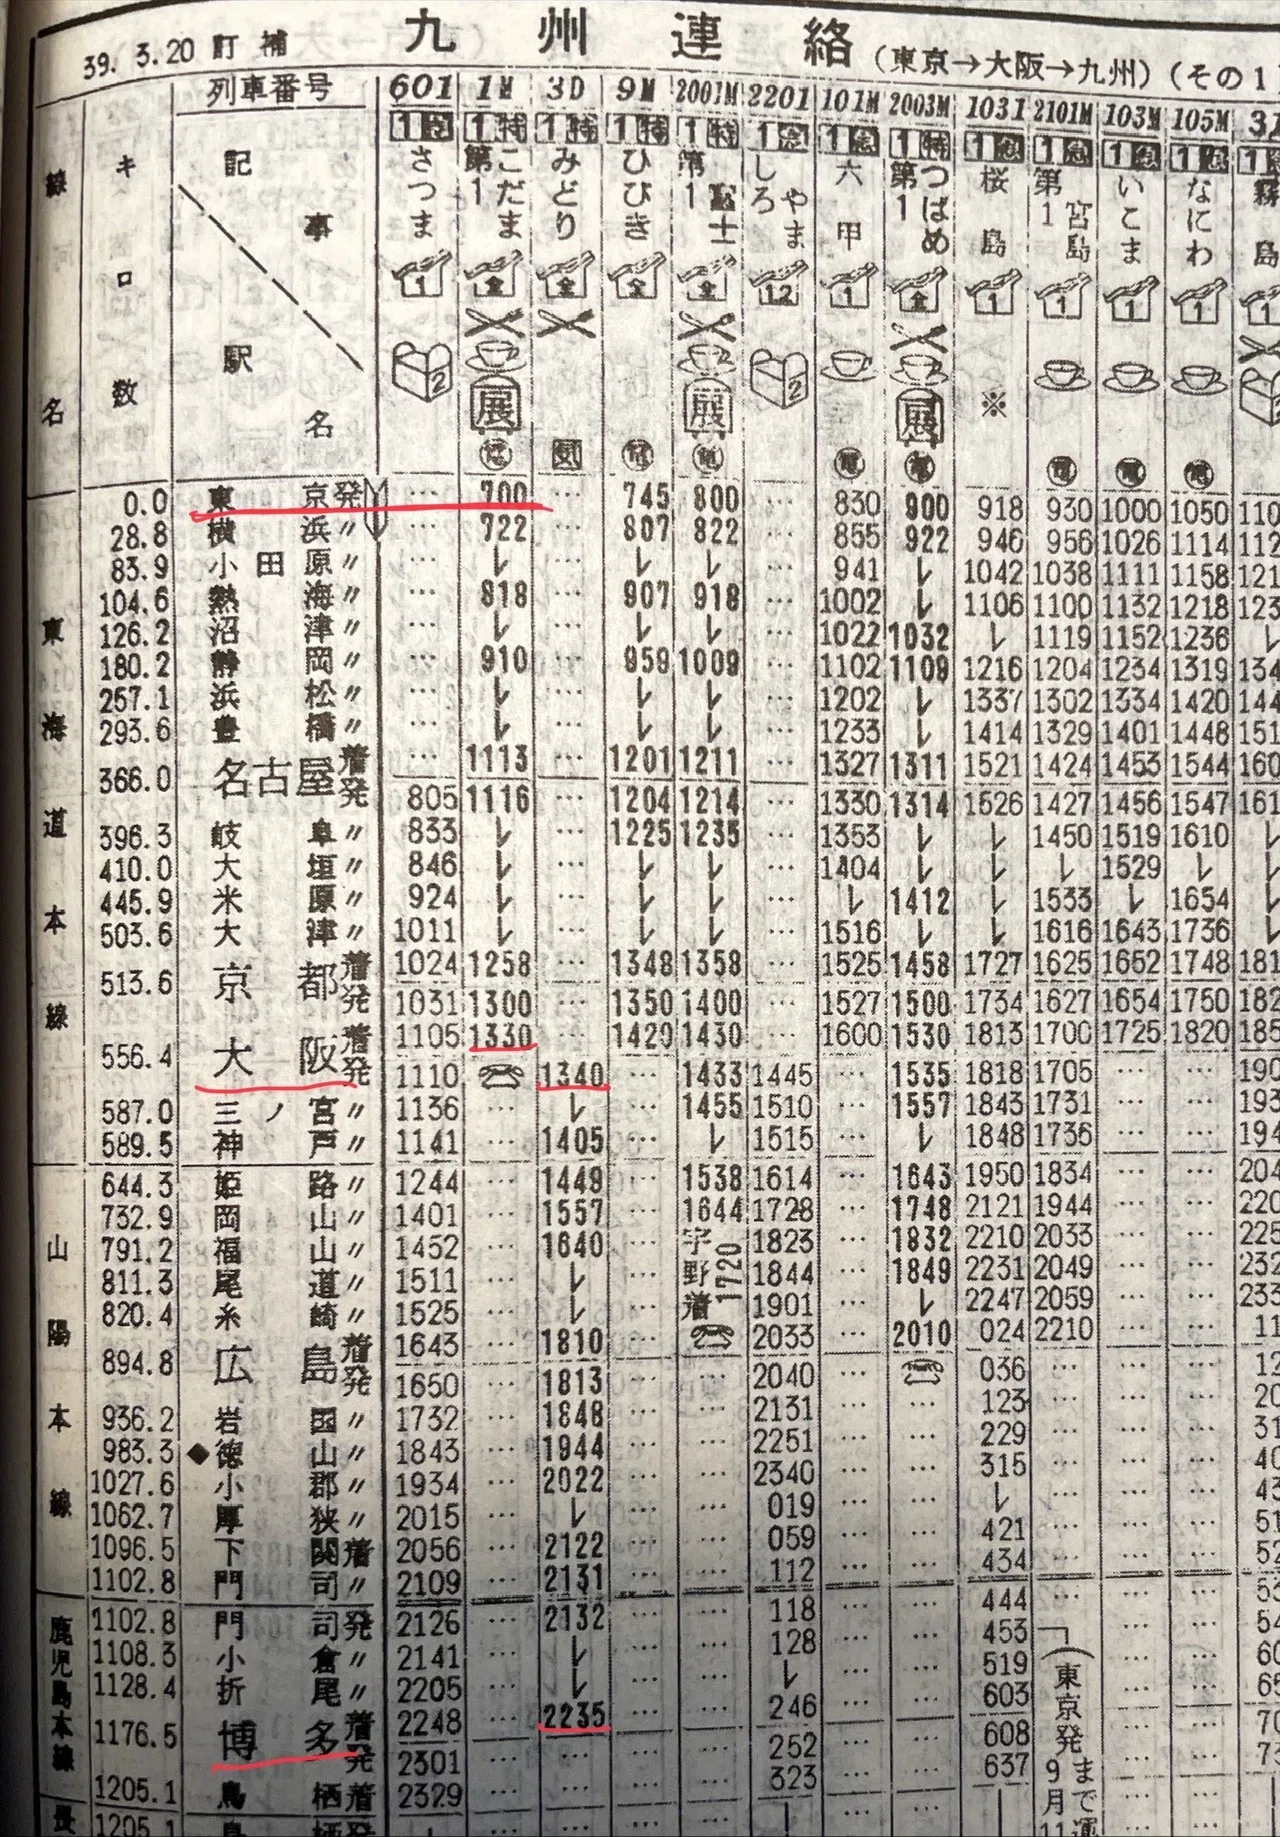 39. 3.20 訂補 九州連絡 (東京→大阪→九州) (その1
列車番号 601 1M 3D 9M 2001M 2201 101M 2003M 1031 2101M 103M 105M
線名 キロ数 記事 駅名
1急 1特 1特 1特 1特 1急 1急 1特 1急 1急 1急 1急
さつま 第1こだま みどり ひびき 第1富士 しろやま 六甲 第1つばめ 桜島 第1宮島 いこま なにわ 霧島
1 全 全 全 全 12 1 全 1 1 1 1
2 展 展 2 展 ※
東海道本線
0.0 東京発 … 700 … 745 800 … 830 900 918 930 1000 1050 110
28.8 横浜〃 … 722 … 807 822 … 855 922 946 956 1026 1114 112
83.9 小田原〃 … レ … レ レ … 941 レ 1042 1038 1111 1158 121
104.6 熱海〃 … 818 … 907 918 … 1002 レ 1106 1100 1132 1218 123
126.2 沼津〃 … レ … レ レ … 1022 1032 レ 1119 1152 1236 レ
180.2 静岡〃 … 910 … 959 1009 … 1102 1109 1216 1204 1234 1319 134
257.1 浜松〃 … レ … レ レ … 1202 レ 1337 1302 1334 1420 144
293.6 豊橋〃 … レ … レ レ … 1233 レ 1414 1329 1401 1448 151
366.0 名古屋着 … 1113 … 1201 1211 … 1327 1311 1521 1424 1453 1544 160
発 805 1116 … 1204 1214 … 1330 1314 1526 1427 1456 1547 161
396.3 岐阜〃 833 レ … 1225 1235 … 1353 レ レ 1450 1519 1610 レ
410.0 大垣〃 846 レ … レ レ … 1404 レ レ レ 1529 レ レ
445.9 米原〃 924 レ … レ レ … レ 1412 レ 1533 レ 1654 レ
503.6 大津〃 1011 レ … レ レ … 1516 レ レ 1616 1643 1736 レ
513.6 京都着 1024 1258 … 1348 1358 … 1525 1458 1727 1625 1652 1748 181
発 1031 1300 … 1350 1400 … 1527 1500 1734 1627 1654 1750 182
556.4 大阪着 1105 1330 … 1429 1430 … 1600 1530 1813 1700 1725 1820 185
発 1110 1340 … 1433 1445 … 1535 1818 1705 … … 190
587.0 三ノ宮〃 1136 … レ … 1455 1510 … 1557 1843 1731 … … 193
589.5 神戸〃 1141 … 1405 … レ 1515 … レ 1848 1736 … … 194
山陽本線
644.3 姫路〃 1244 … 1449 … 1538 1614 … 1643 1950 1834 … … 204
732.9 岡山〃 1401 … 1557 … 1644 1728 … 1748 2121 1944 … … 220
791.2 福山〃 1452 … 1640 … 宇野着1720 1823 … 1832 2210 2033 … … 225
811.3 尾道〃 1511 … レ … 1844 … 1849 2231 2049 … … 232
820.4 糸崎〃 1525 … レ … 1901 … レ 2247 2059 … … 233
894.8 広島着 1643 … 1810 … 2033 … 2010 024 2210 … … 11
発 1650 … 1813 … … 2040 … 036 … … … 12
936.2 岩国〃 1732 … 1848 … … 2131 … … 123 … … … 20
983.3 ◆徳山〃 1843 … 1944 … … 2251 … … 229 … … … 31
1027.6 小郡〃 1934 … 2022 … … 2340 … … 315 … … … 40
1062.7 厚狭〃 2015 … レ … … 019 … … レ … … … 43
1096.5 下関着 2056 … 2122 … … 059 … … 421 … … … 51
1102.8 門司〃 2109 … 2131 … … 112 … … 434 … … … 52
鹿児島本線
1102.8 門司発 2126 … 2132 … … 118 … … 444 … … 53
1108.3 小倉〃 2141 … レ … … 128 … … 453 … … 54
1128.4 折尾〃 2205 … レ … … レ … … 519 … … 60
1176.5 博多着 2248 … 2235 … … 246 … … 603 … … 65
発 2301 … … … … 252 … … 608 … … 70
1205.1 鳥栖着 2329 … … … … 323 … … 637 … … 73
(東京発9月まで運
長 1205.1 鳥栖発